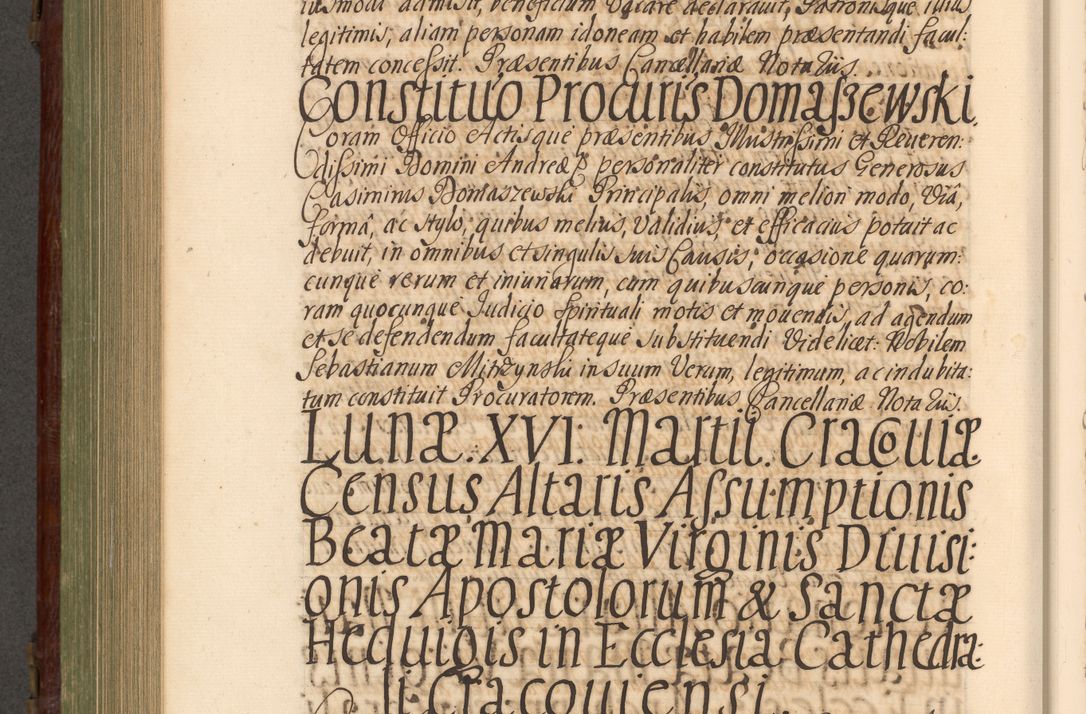 iusmodi admisit, beneficium vacare declarauit, Patronisque illius
legitimis, aliam personam idoneam et habilem præsentandi facul:
tatem concessit. Præsentibus Cancellariæ Notariis.
Constitutio Procuris Domaszewski.
Coram Officio Actisque præsentibus Illustrissimi et Reueren:
dissimi Domini Andreæ personaliter constitutus Generosus
Casimirus Domaszewski Principalis, omni meliori modo, viâ,
formâ, ac stylo, quibus melius, validius, et efficacius potuit ac
debuit, in omnibus et singulis suis Causis, occasione quarum:
cunque rerum et iniuriarum, cum quibuscunque personis, co:
ram quocunque Iudicio spirituali motis et mouendis, ad agendum
et se defendendum facultateque substituendi Videlicet: Nobilem
Sebastianum Mitrzynski in suum Verum, legitimum, ac indubita:
tum constituit Procuratorem. Præsentibus Cancellariæ Notariis.
Lunæ. XVI. Martii. Cracouiæ.
Census Altaris Assumptionis
Beatæ Mariæ Virginis Diuisi:
onis Apostolorum & Sanctæ
Heduigis in Ecclesia Cathedra:
li Cracouiensi